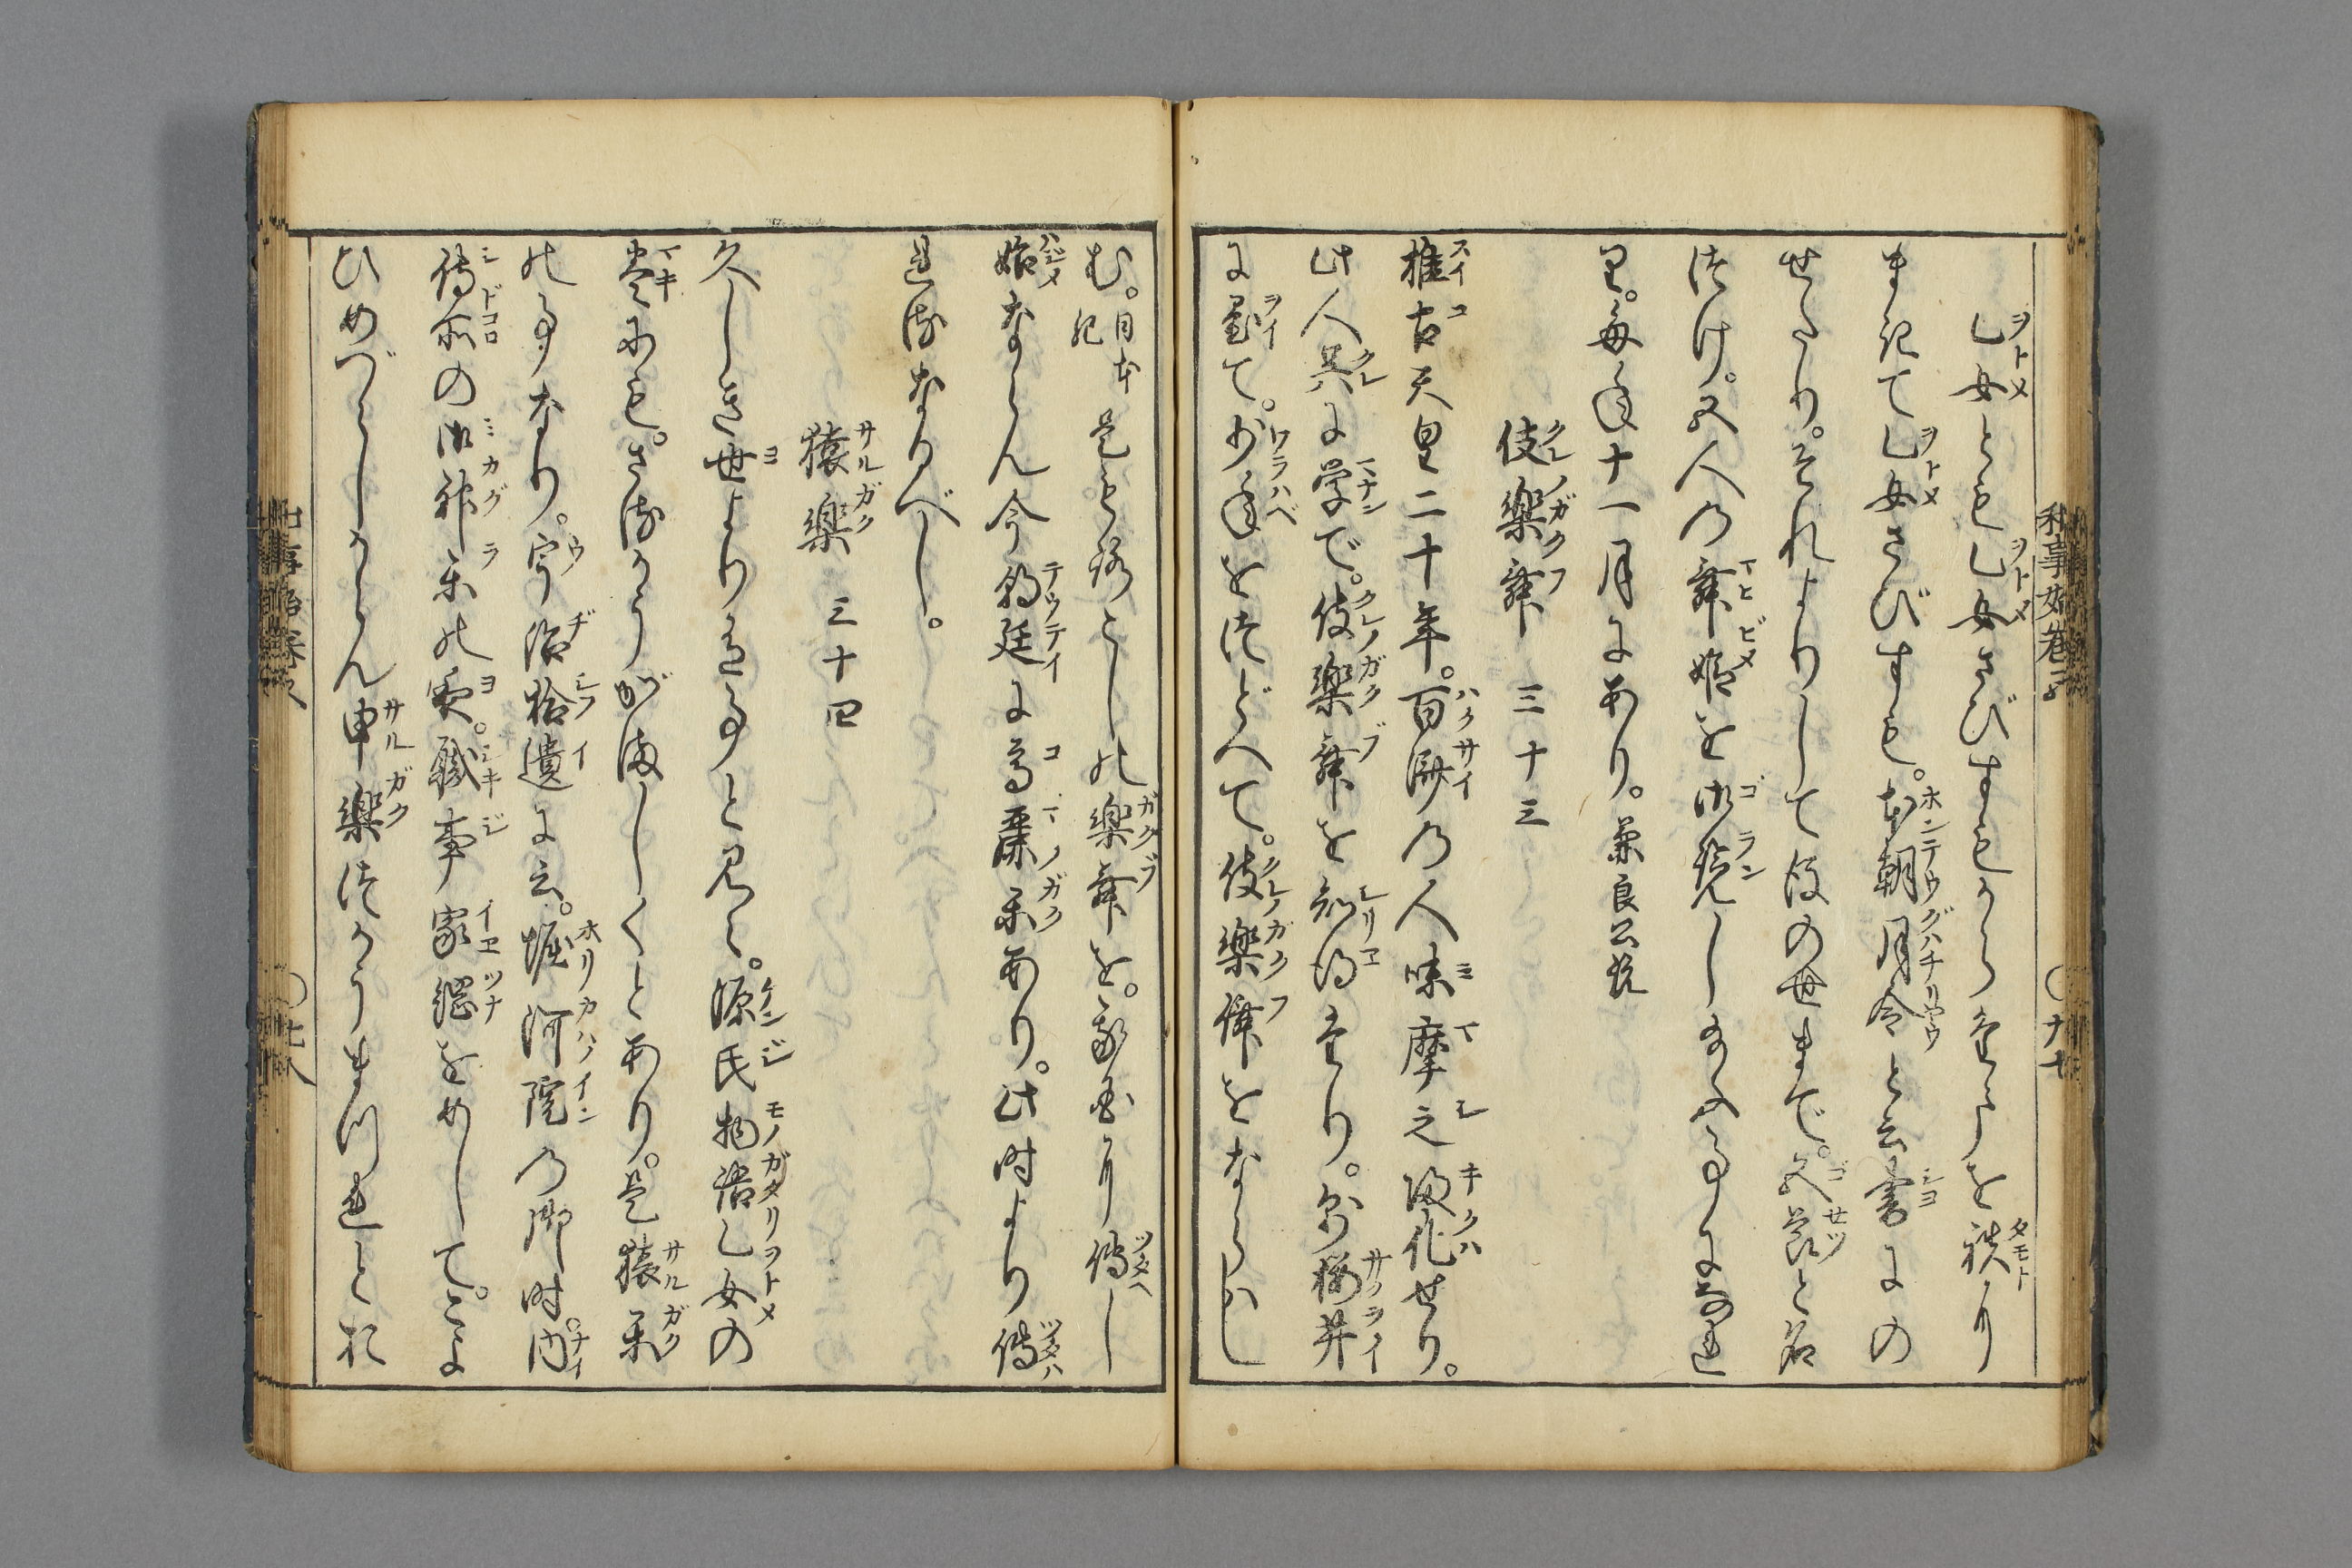 乙女とも乙女さびすもからたまを袂に
まきて乙女さびすも。本朝月令と云書にの
せたり。それよりして後の世まで。五節と名
づけ。五人の舞姫を御覧し給ふ事になれ
り。毎年十一月にあり。兼良公説
伎楽舞 三十三
推古天皇二十年。百済の人味摩之帰化せり。
此人呉に学で。伎楽舞を知得たり。則桜井
に置て。少年をつどへて。伎楽儛をならはし
む。日本紀 是もろこしの楽舞を。我国に傳し
始ならん今朝廷に高麗楽あり。此時より傳
れるなるべし。
猿楽 三十四
久しき世より有事と見ゆ。源氏物語乙女の
巻にも。さるがうがましくとあり。是猿楽
の事なり。宇治拾遺に云。堀河院の御時。内
侍所の御神楽の夜。職事家綱をめして。こよ
ひめづらしからん申楽つかうまつれとお
和事始巻二
〇十七